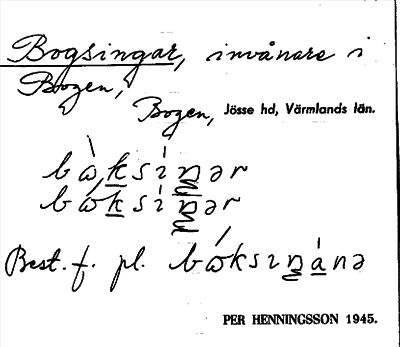 Bogsingar, invånare i
Bogen,
Bogen, Jösse hd, Värmlands län.
bòksíŋər
bóksìŋər
Best. f. pl. bóksıŋánə
PER HENNINGSSON 1945.